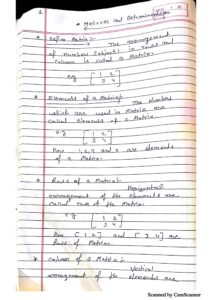 1
* Matrices and Determinants
* Define Matrix:-
The arrangement
of numbers (objects) in rows and
column is called a Matrix.
e.g [ 1 2
3 4 ]
* Elements of a Matrix:-
The numbers
which are used in Matrix are
called elements of a Matrix.
e.g [ 1 2
3 4 ]
Here 1,2,3 and 4 are elements
of a Matrix.
* Rows of a Matrix:-
Horizontal
arrangement of the elements are
called rows of the Matrix.
e.g [ 1 2
3 4 ]
Here [ 1 2 ] and [ 3 4 ] are
Rows of Matrix
* Column of a Matrix:-
Vertical
arrangement of the elements are
Scanned by CamScanner